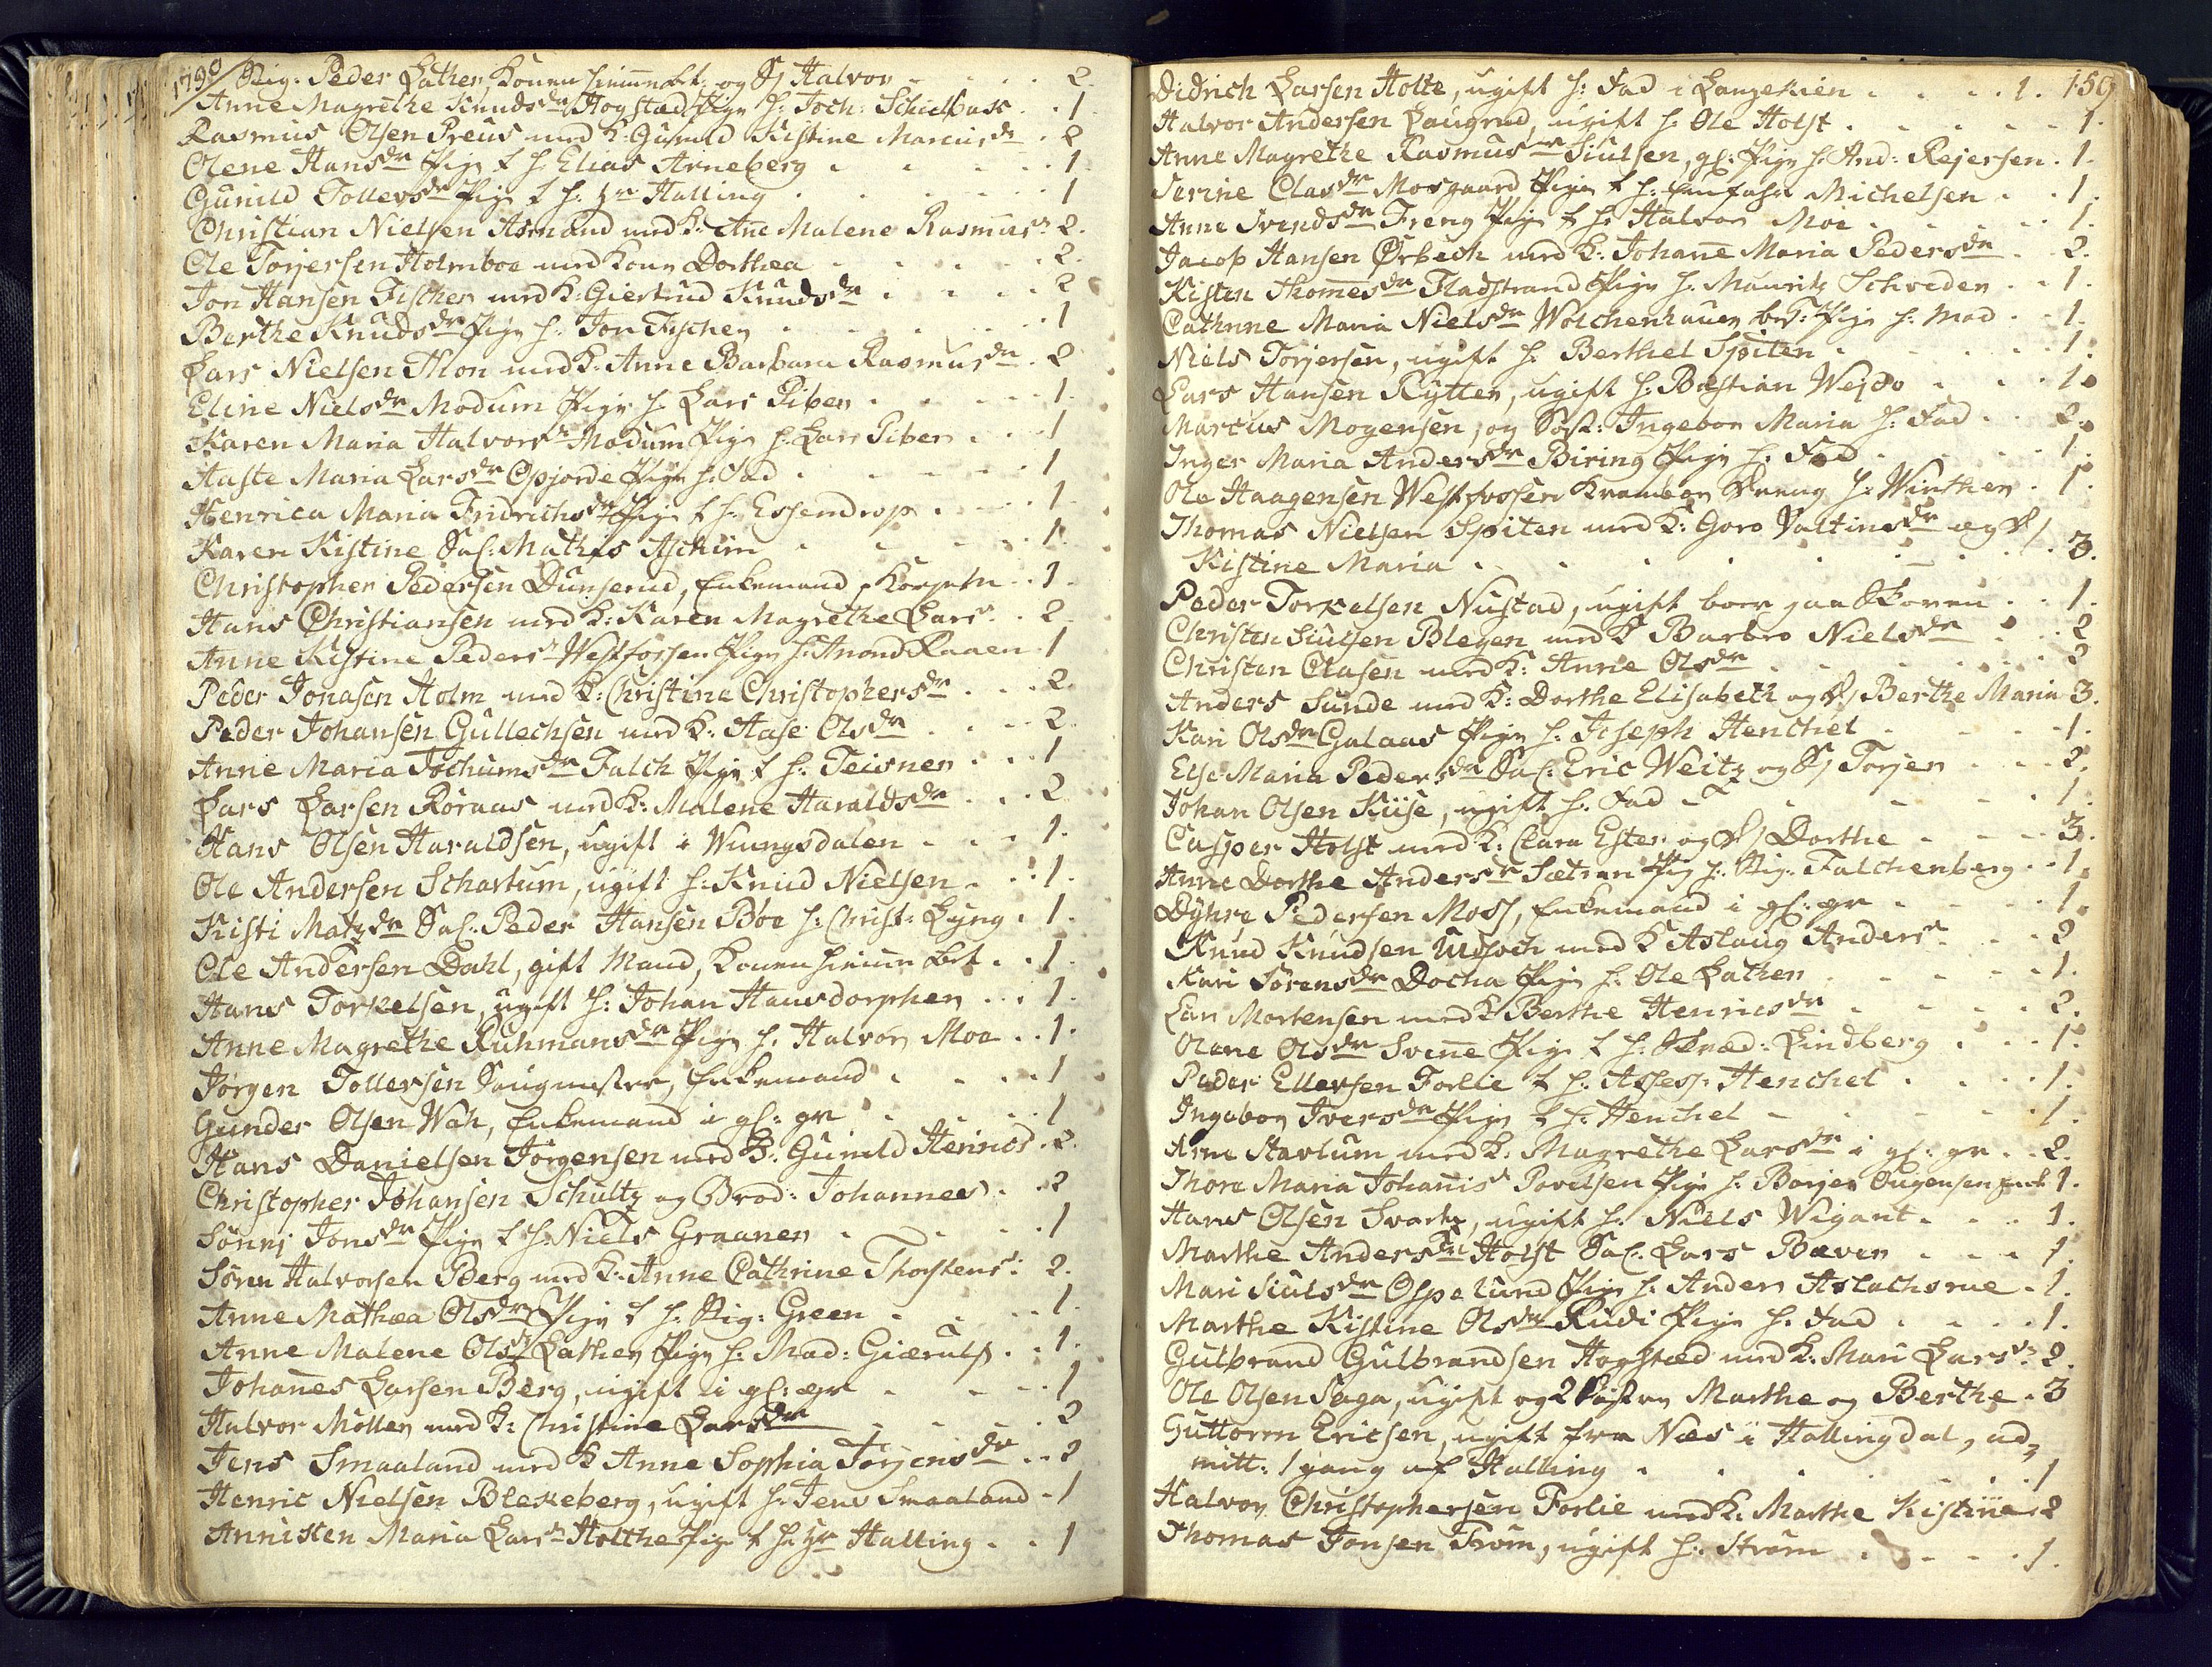 1790
Sig: Peder Lather, Konen hiemme bt: og S/ Halvor - - - 2.
Anne Magrethe Knudsdr Hogstad Pige h: Joch: Schielbasc . . 1
Rasmus Olsen Preus med K: Gunild Kistine Marcusdr . 2
Olene Hansdr Pige t h: Elias Arneberg . . . . 1
Gunild Tollevsdr Pige t h: Hr Halling . . . . 1
Christian Nielsen Asmand med K: Ane Malene Rasmusdr 2.
Ole Torjersen Holmboe med Konen Dorthea . . . . 2.
Jon Hansen Fischer med K: Giertrud Knudsdr . . . 2
Berthe Knudsdr Pige h: Jon Fischer . . . . 1
Lars Nielsen Thon med K: Anne Barbara Rasmusdr . 2
Eline Nielsdr Modum Pige h: Lars Piber . . . . 1.
Karen Maria Halvorsdr Modum Pige h: Lars Piber . . . 1
Haste Maria Larsdr Opjorde Pige h: Fad . . . . 1
Henrica Maria Fridrichsdr Pige t h: Essendrop . . . 1.
Karen Kistine Sal: Mathis Aschim . . . . 1.
Christopher Pedersen Dunserud, Enkemand, . . 1.
Hans Christiansen med K: Karen Magrethe Larsdr . . 2
Anne Kistine Pedersdr Westfossen Pige h: Anond Raaen 1
Peder Jonasen Holm med K: Christina Christophersdr . . . 2.
Peder Johansen Gullechsen med K: Aase Olsdr . . . 2.
Anne Maria Jochumsdr Falch Pige t h: Teisner . . . 1
Lars Larsen Roraas med K: Malene Haraldsdr . . . 2
Hans Olsen Haraldsen, ugift i Wiungsdalen . . . 1.
Ole Andersen Schartum, ugift h: Knud Nielsen . . . 1.
Kisti Matzdr Sal: Peder Hansen Böe h: Christ: Lyng . 1.
Ole Andersen Dahl, gift Mand, Konen hiemme bt . . 1.
Hans Torkelsen, ugift h: Johan Hausdorpher . . . 1.
Anne Magrethe Ruhmansdr Pige h: Halvor Moe . . 1.
Jörgen Tollersen Saugmester, Enkemand . . . . 1
Gunder Olsen Wah, Enkemand i gl: gr . . . . 1
Hans Danielsen Jörgensen med K: Gunild Henricsd . 2.
Christopher Johansen Schultz og Brod: Johannes . . 2
Sönni Jonsdr Pige t h: Niels Graanen . . . . 1
Sören Halvorsen Berg med K: Anne Cathrine Thorstens: 2.
Anne Mathæa Olsdr Pige t h: Sig: Green . . . . 1.
Anne Malene Olsdr Lather Pige h: Mad: Giærulf . . 1.
Johanes Larsen Berg, ugift i gl: gr . . . . 1
Halvor Möller med K: Christine Larsdr . . . . 2
Jens Smaaland med K Anne Sophia Torjensdr . . 2
Henric Nielsen Blexeberg, ugift h: Jens Smaaland - 1
Annisken Maria Larsdr Holthe Pige t h: Hr Halling . . 1
159
Didrich Larsen Holte, ugift h: Fad i Langekien . . . 1.
Halvor Andersen Laugrud, ugift h: Ole Holst . . . . 1.
Anne Magrethe Rasmusdr Siulsen, gl: Pige h: And: Rejersen . 1.
Serine Clasdr Mosgaard Pige t h: Michelsen . . 1.
Anne Svendsdr Freng Pige t h: Halvor Moe . . . . 1.
Jacob Hansen Örbech med K: Johane Maria Pedersdr . . 2.
Kisten Thomesdr Fladstrand Pige h: Mauritz Schweden . . 1.
Cathrine Maria Nielsdr Wolchenhauer Pige h: Mod . . 1.
Niels Torjersen, ugift h: Berthel Spiten . . . . 1.
Lars Hansen Rytter, ugift h: Bastian Wejdo . . . 1.
Marcus Mogensen, og Söst: Ingebor Maria h: Fad . . 2.
Inger Maria Andersdr Biring Pige h: Fad . . . . 1.
Ole Haagensen Westfossen Krambod Dreng h: Winther . 1.
Thomas Nielsen Spiten med K: Goro Valtinsdr og D/
Kistine Maria . . . . . . . 3.
Peder Torkelsen Nustad, ugift boer paa Skoven . . 1.
Christen Siulsen Blegen med K Barbro Nielsdr . . . 2
Christen Olasen med K: Anne Olsdr . . . . . 2
Anders Sunde med K: Dorthe Elisabeth og D/ Berthe Maria 3.
Kari Olsdr Galaas Pige h: Joseph Henchel . . . 1.
Else Maria Pedersdr Sal: Eric Weitz og S/ Torjen . . . 2.
Johan Olsen Kiise, ugift h: Fad - . . . . 1.
Casper Holst med K: Clara Ester og D/ Dorthe . . . 3.
Anne Dorthe Andersdr Sætran Pig h: Sig: Falchenberg . . 1.
Dyhre Pedersen Moss, Enkemand i gl: gr . . . . 1.
Knud Knudsen med K Aslaug Andersdr . . 2
Kari Sörensdr Docka Pige h: Ole Lather . . . . 1.
Lars Mortensen med K Berthe Henricsdr . . . . 2.
Olene Olsdr Svene Pige t h: Lindberg . . . 1.
Peder Ellevsen Forlie t h: Assess: Henchel . . . . 1.
Ingebor Iversdr Pige t h: Henchel - . . . . 1.
Arne Stavlum med K: Magrethe Larsdr i gl: gr . . 2.
Thore Maria Johanisdr Povelsen Pige h: Borjer Ougensen 1.
Hans Olsen Svartz, ugift h: Niels Wigant . . . 1.
Marthe Andersdr Holst Sal: Lars Bæver . . . 1.
Mari Siulsdr Ospelund Pige h: Anders Aslachsrue . 1.
Marthe Kistine Olsdr Rudi Pige h: Fad . . . . 1.
Gulbrand Gulbrandsen Hogstad med K: Mari Larsdr 2.
Ole Olsen Saga, ugift og 2 Söstre Marthe og Berthe . 3
Guttorm Ericsen, ugift fra Næs i Hallingdal, ad
mitt: 1 gang af Halling . . . . 1
Halvor Christophersen Forlie med K: Marthe Kistine 2
Thomas Jonsen From, ugift h: Ström . . . . 1.